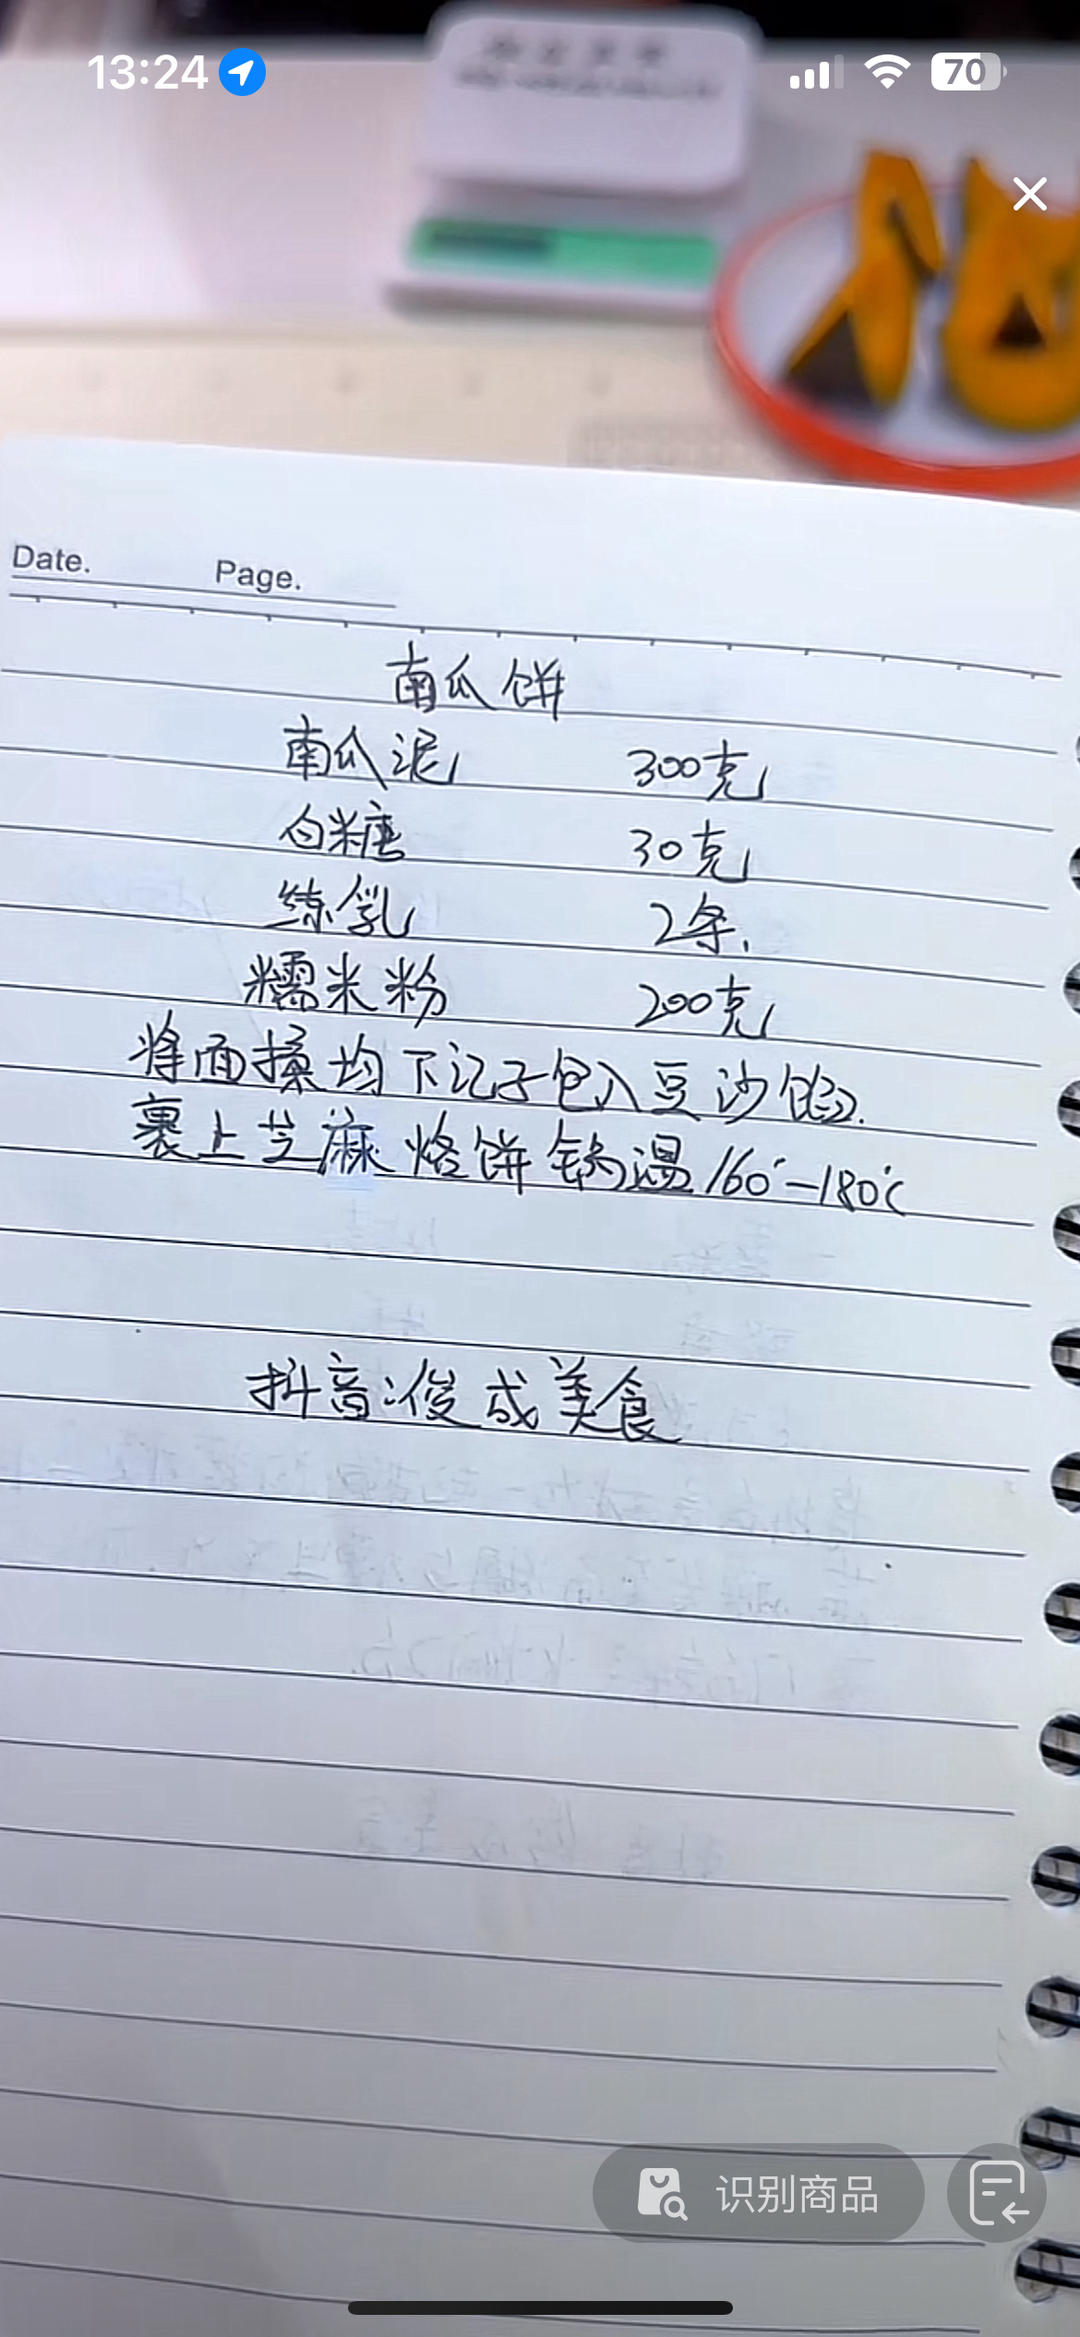 13:24
70
Date. Page.
南瓜饼
南瓜泥 300克
白糖 30克
练乳 2条.
糯米粉 200克
将面揉均下记子包入豆沙馅.
裹上芝麻烙饼锅温160°-180℃
抖音:俊成美食
识别商品